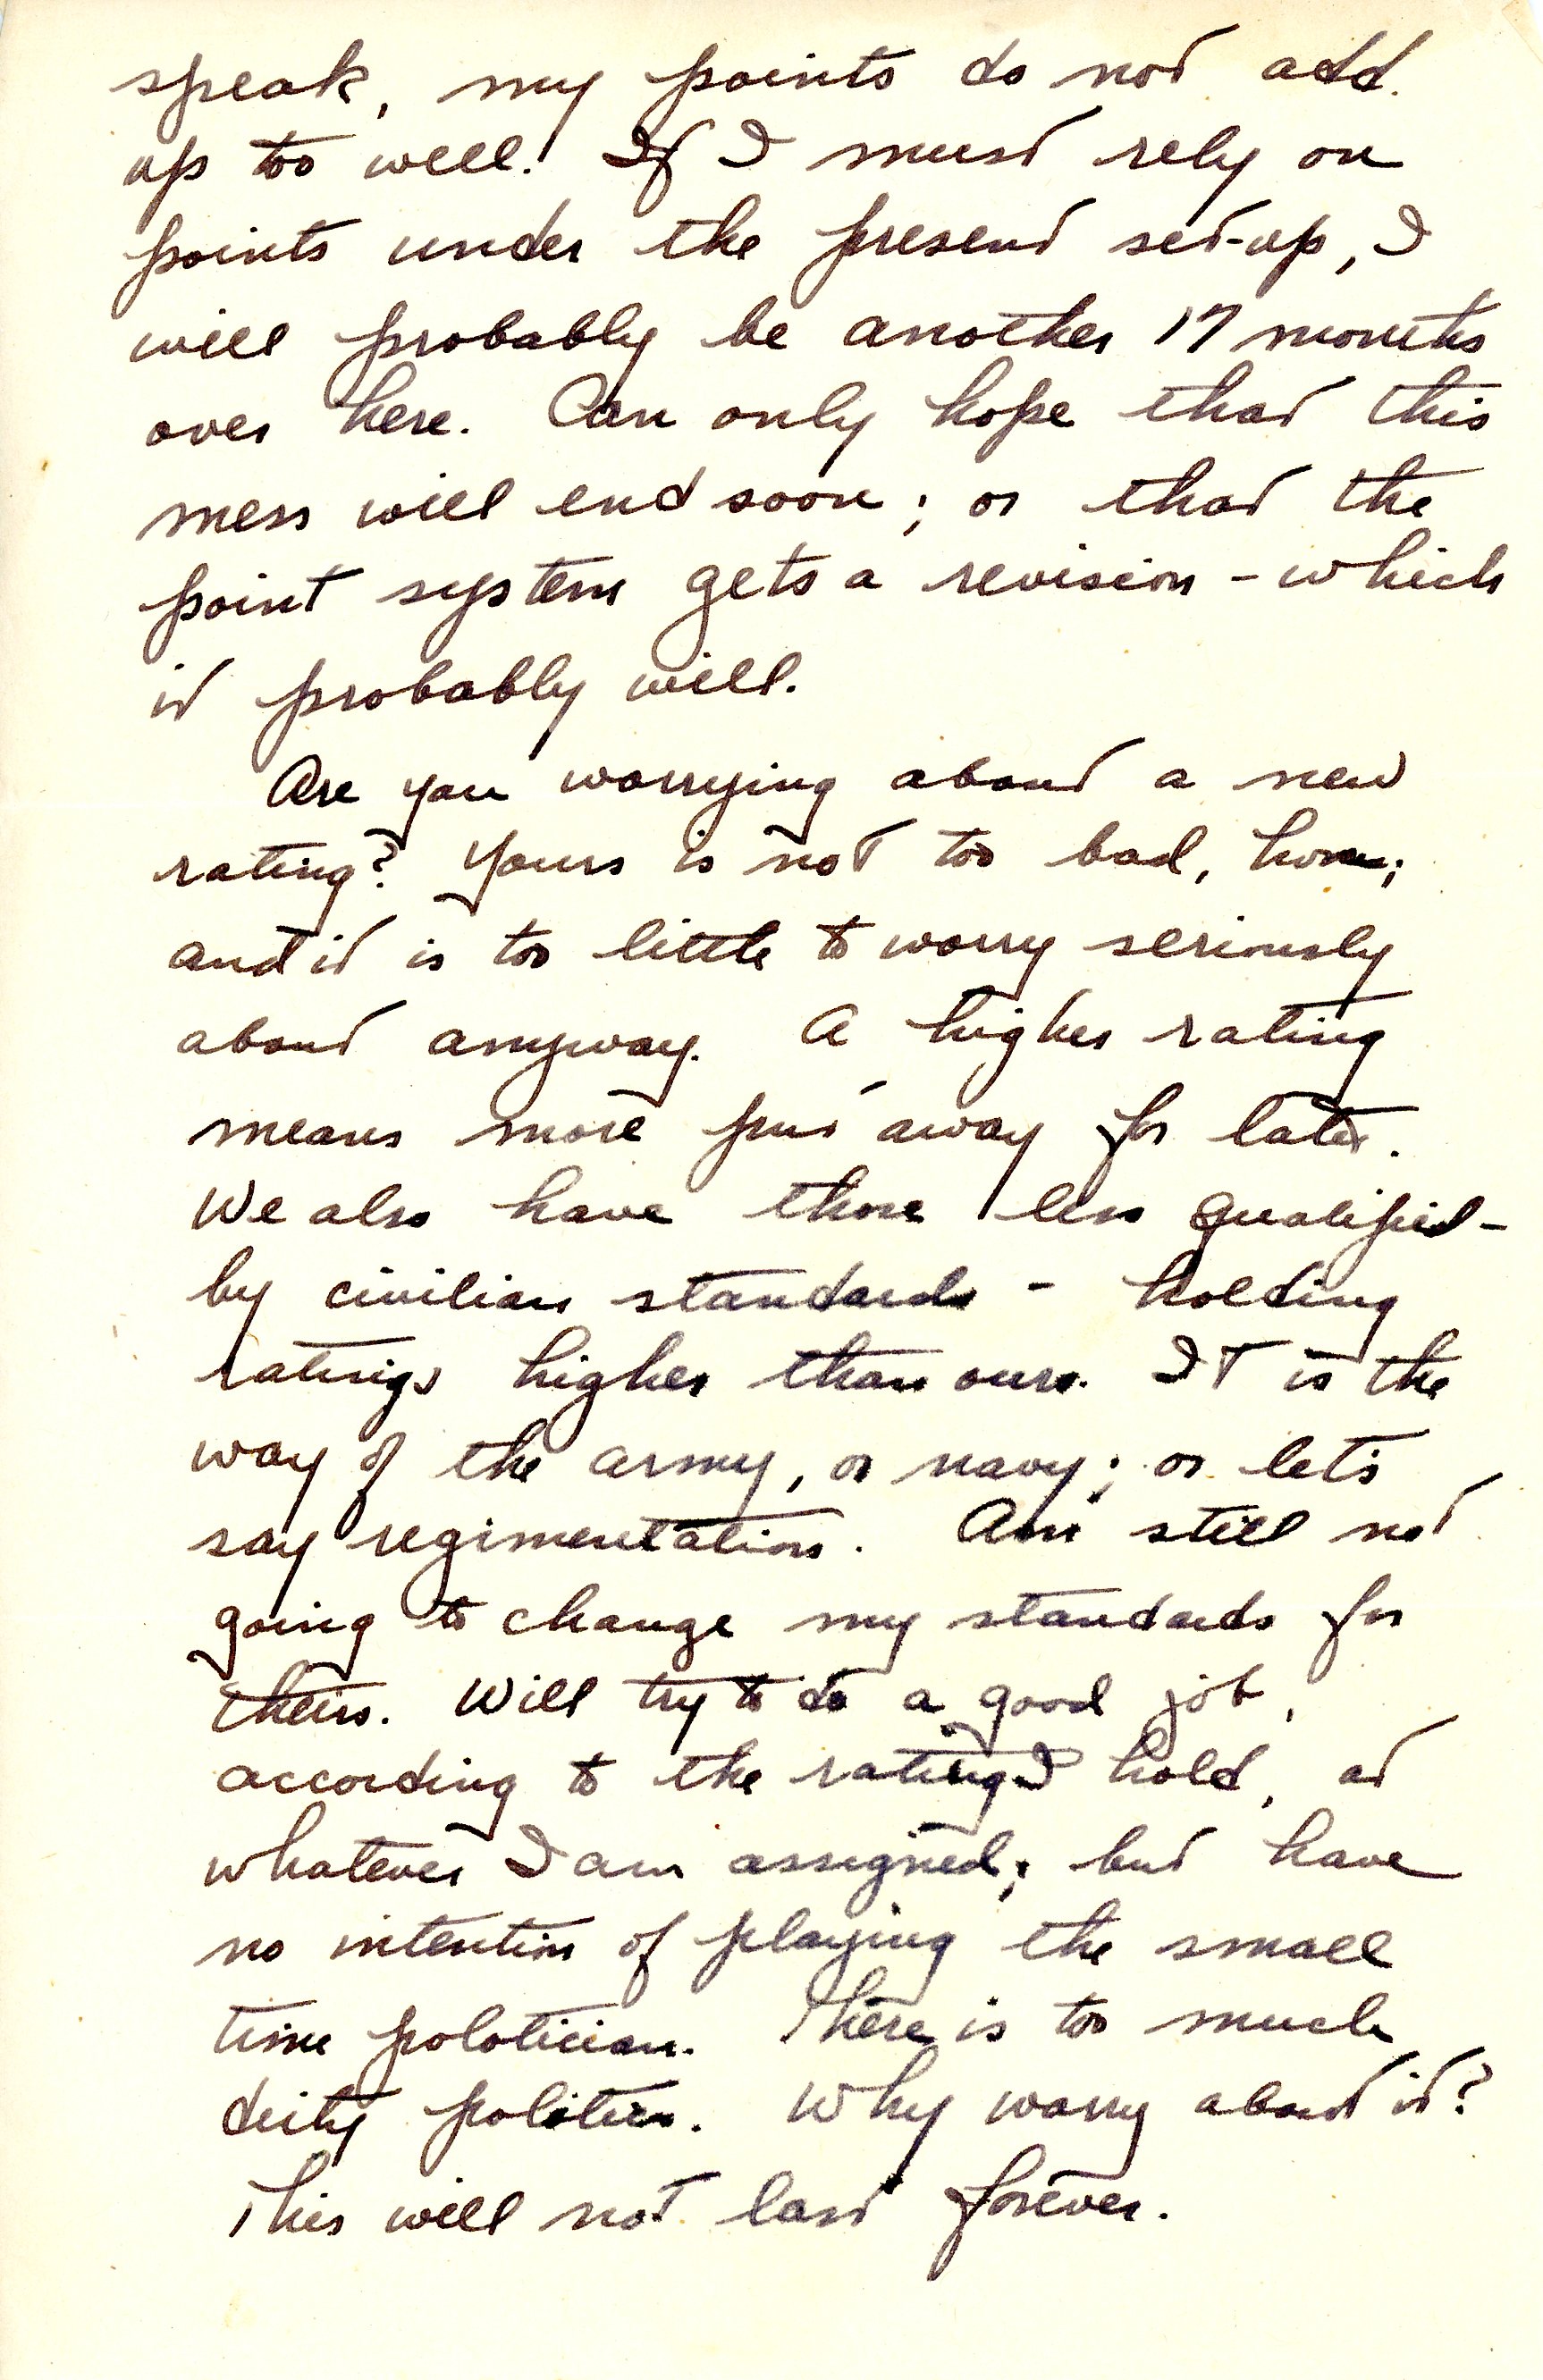 speak, my points do not add
up too well. If I must rely on
points under the present set-up, I
will probably be another 17 months
over here. Can only hope that this
mess will end soon; or that the
point system gets a revision - which
it probably will.
Are you worrying about a new
rating? Yours is not too bad, hon;
and it is too little to worry seriously
about anyway. A higher rating
means more put away for later.
We also have those less qualified -
by civilian standards - holding
ratings higher than ours. It is the
way of the army, or navy; or let's
say regimentation. Am still not
going to change my standards for
theirs. Will try to do a good job,
according to the rating I hold, at
whatever I am assigned; but have
no intention of playing the small
time polotician. There is too much
dirty politics. Why worry about it?
This will not last forever.